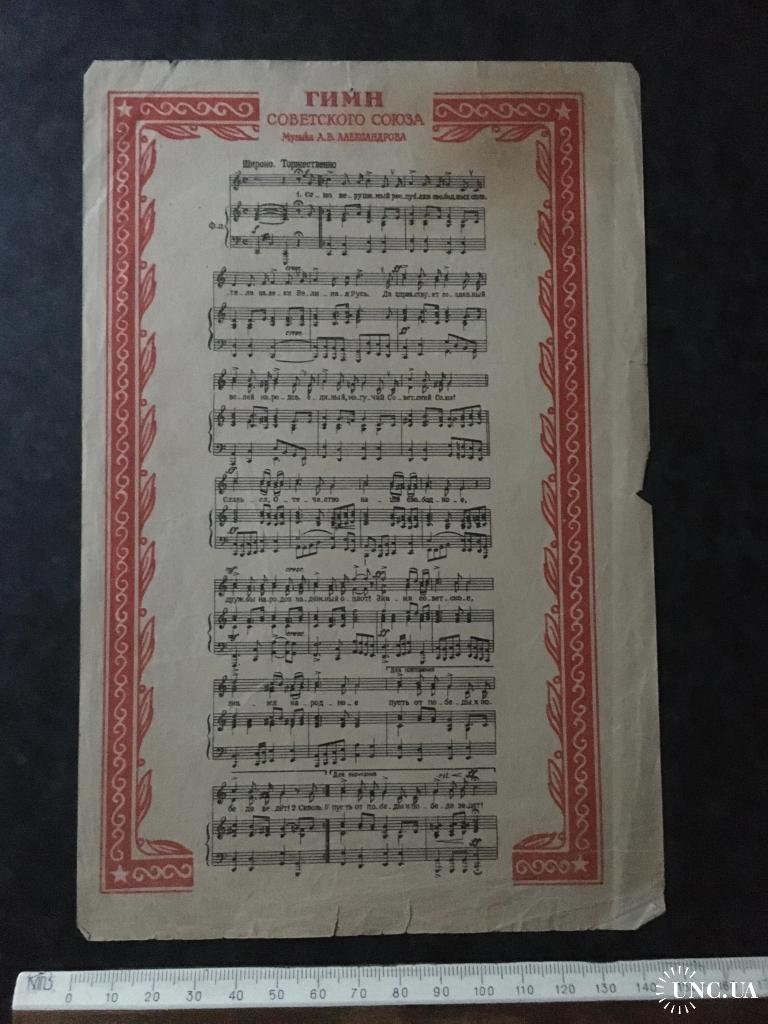 ГИМН
СОВЕТСКОГО СОЮЗА
Музыка А.В. АЛЕКСАНДРОВА
Широко. Торжественно
1. Со_юз не_руши_мый рес_публик свобод_ных спло_
Ф.п.
cresc.
_ти_ла на_ве_ки Ве_ли_ка_я Русь. Да здрав_ству_ет со_здан_ный
cresc.
во_лей на_ро_дов е_ди_ный, мо_гу_чий Со_вет_ский Со_юз!
Славь_ся, О_те_че_ство на_ше сво_бод_но_е,
cresc.
друж_бы на_ро_дов на_дёж_ный о_плот! Зна_мя со_вет_ско_е,
cresc.
Для повторения
зна_мя на_род_но_е пусть от по_бе_ды к по_
Для окончания
бе_де ве_дёт! 2. Сквозь пусть от по_бе_ды к по_бе_де ве_дёт!
0 10 20 30 40 50 60 70 80 90 100 110 120 130 140
UNC.UA